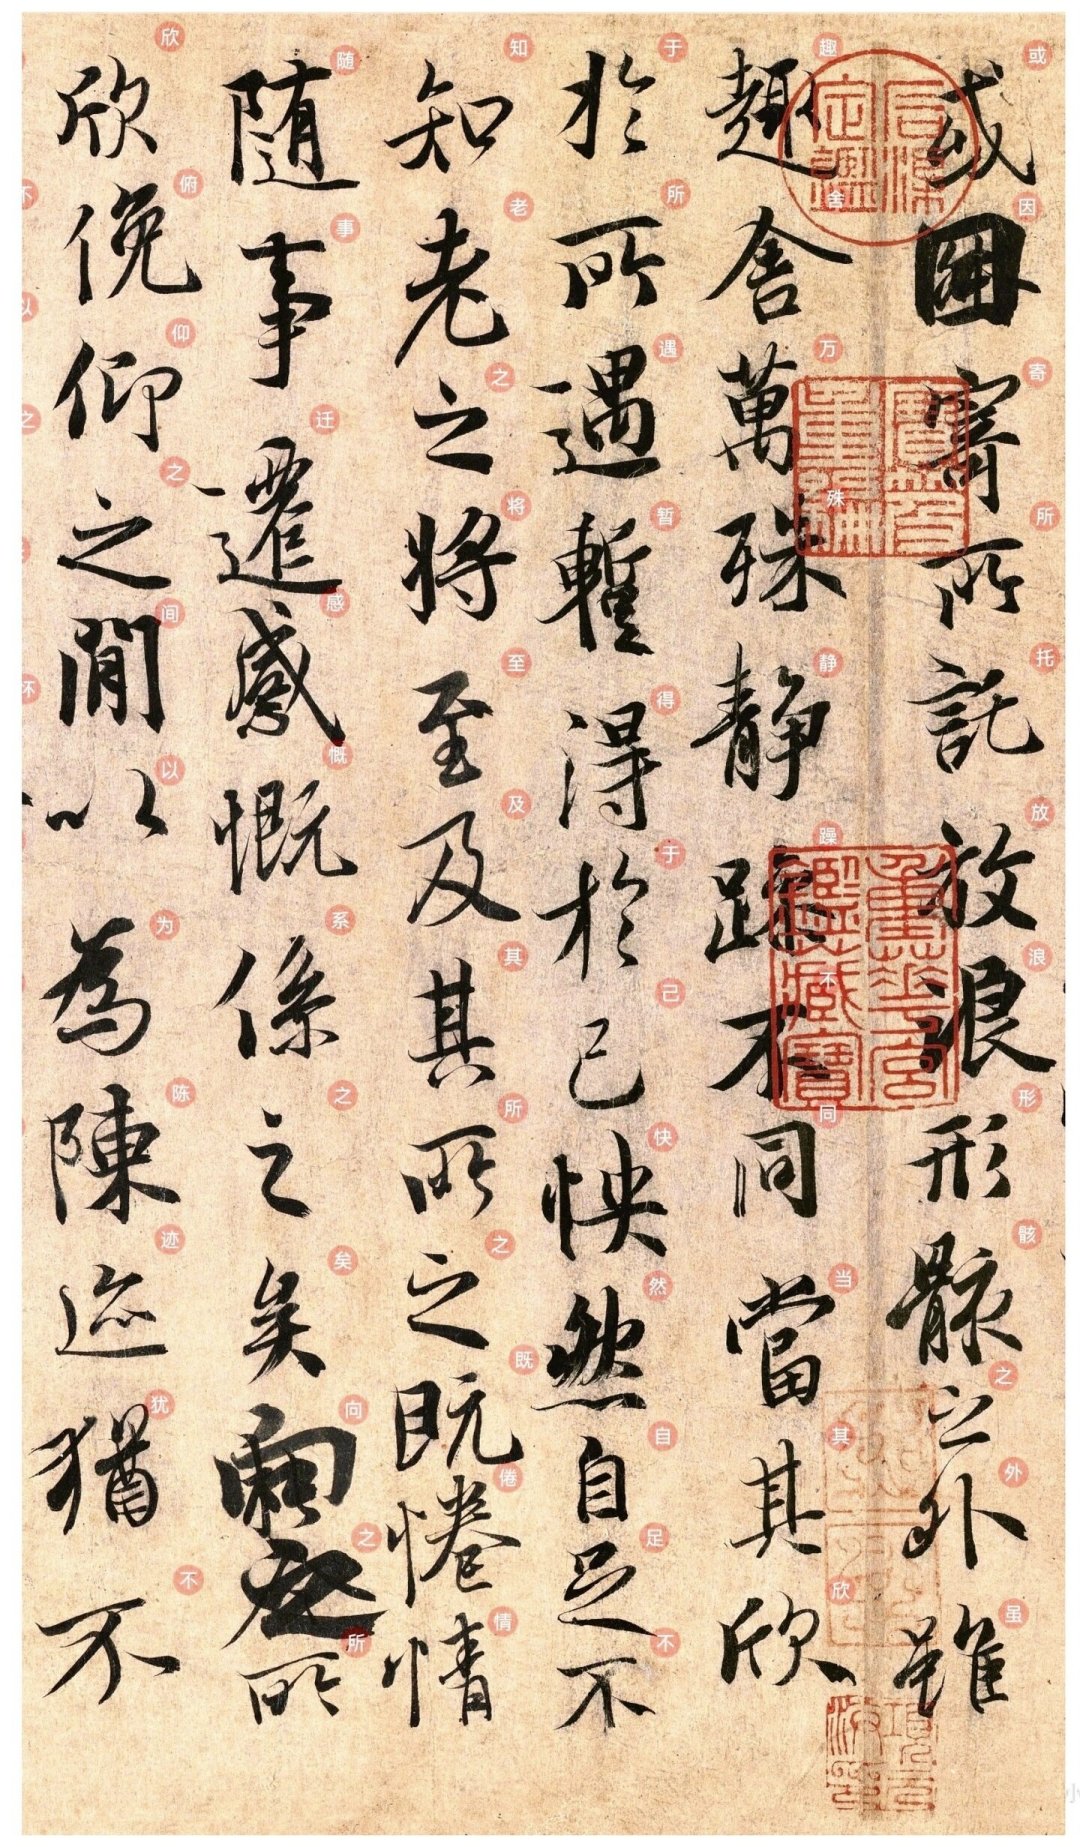 或因寄所託放浪形骸之外雖
趣舍萬殊靜躁不同當其欣
於所遇暫得於己怏然自足不
知老之將至及其所之既惓情
隨事遷感慨係之矣向之所
欣俛仰之閒以為陳迹猶不
或因寄所托放浪形骸之外虽
趣舍万殊静躁不同当其欣
于所遇暂得于己快然自足不
知老之将至及其所之既倦情
随事迁感慨系之矣向之所
欣俯仰之间以为陈迹犹不